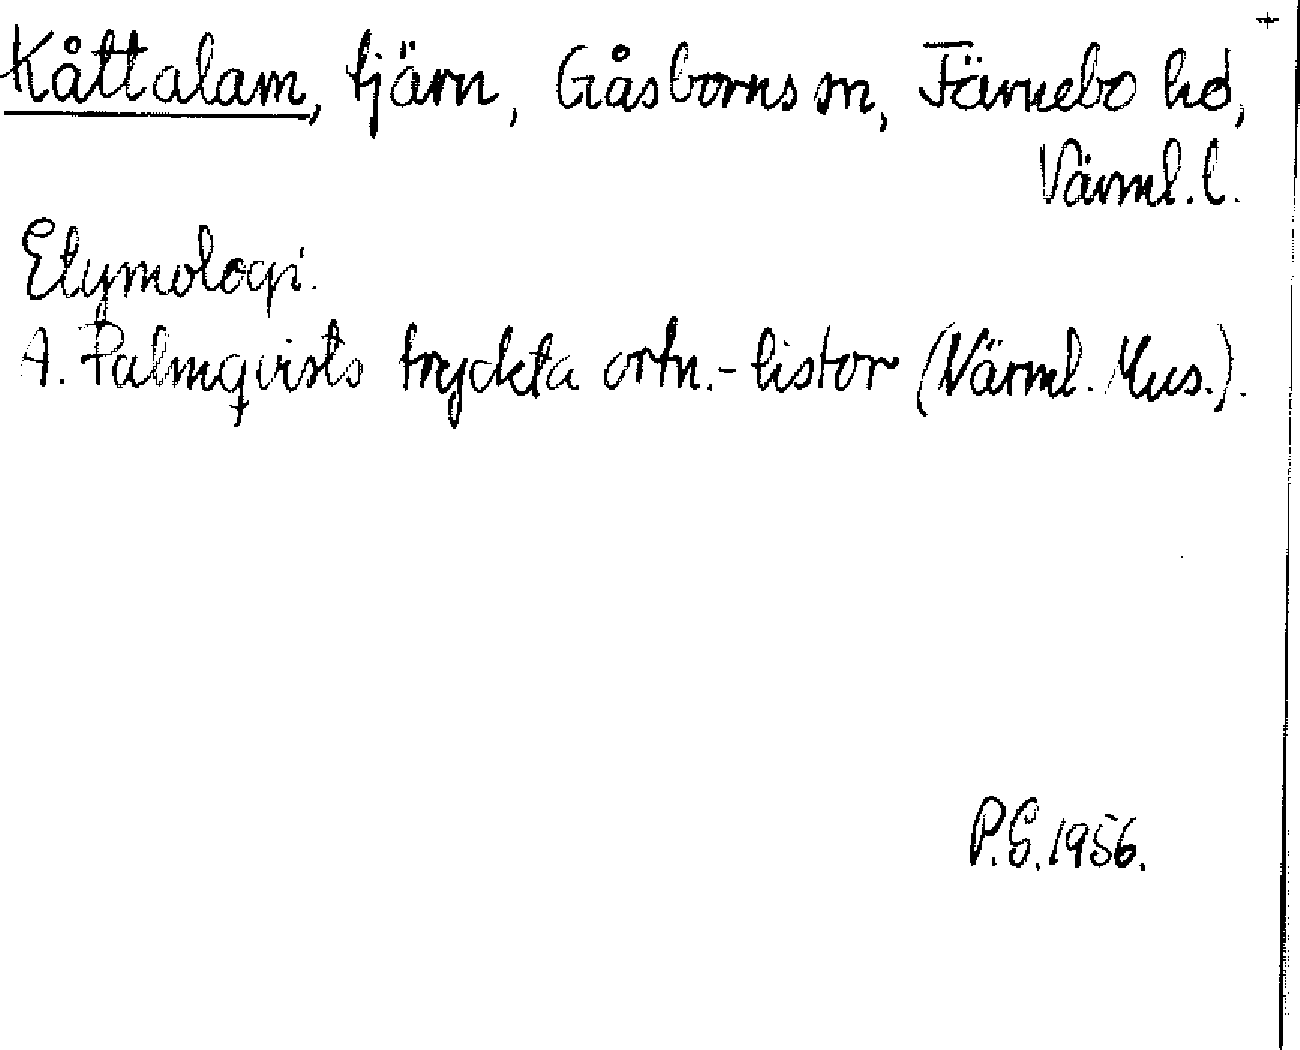 +
Kåttalam, tjärn, Gåsborns sn, Färnebo hd,
Värml. l.
Etymologi.
A. Palmqvists tryckta ortn.-listor (Värml. Mus.).
P.G. 1956.